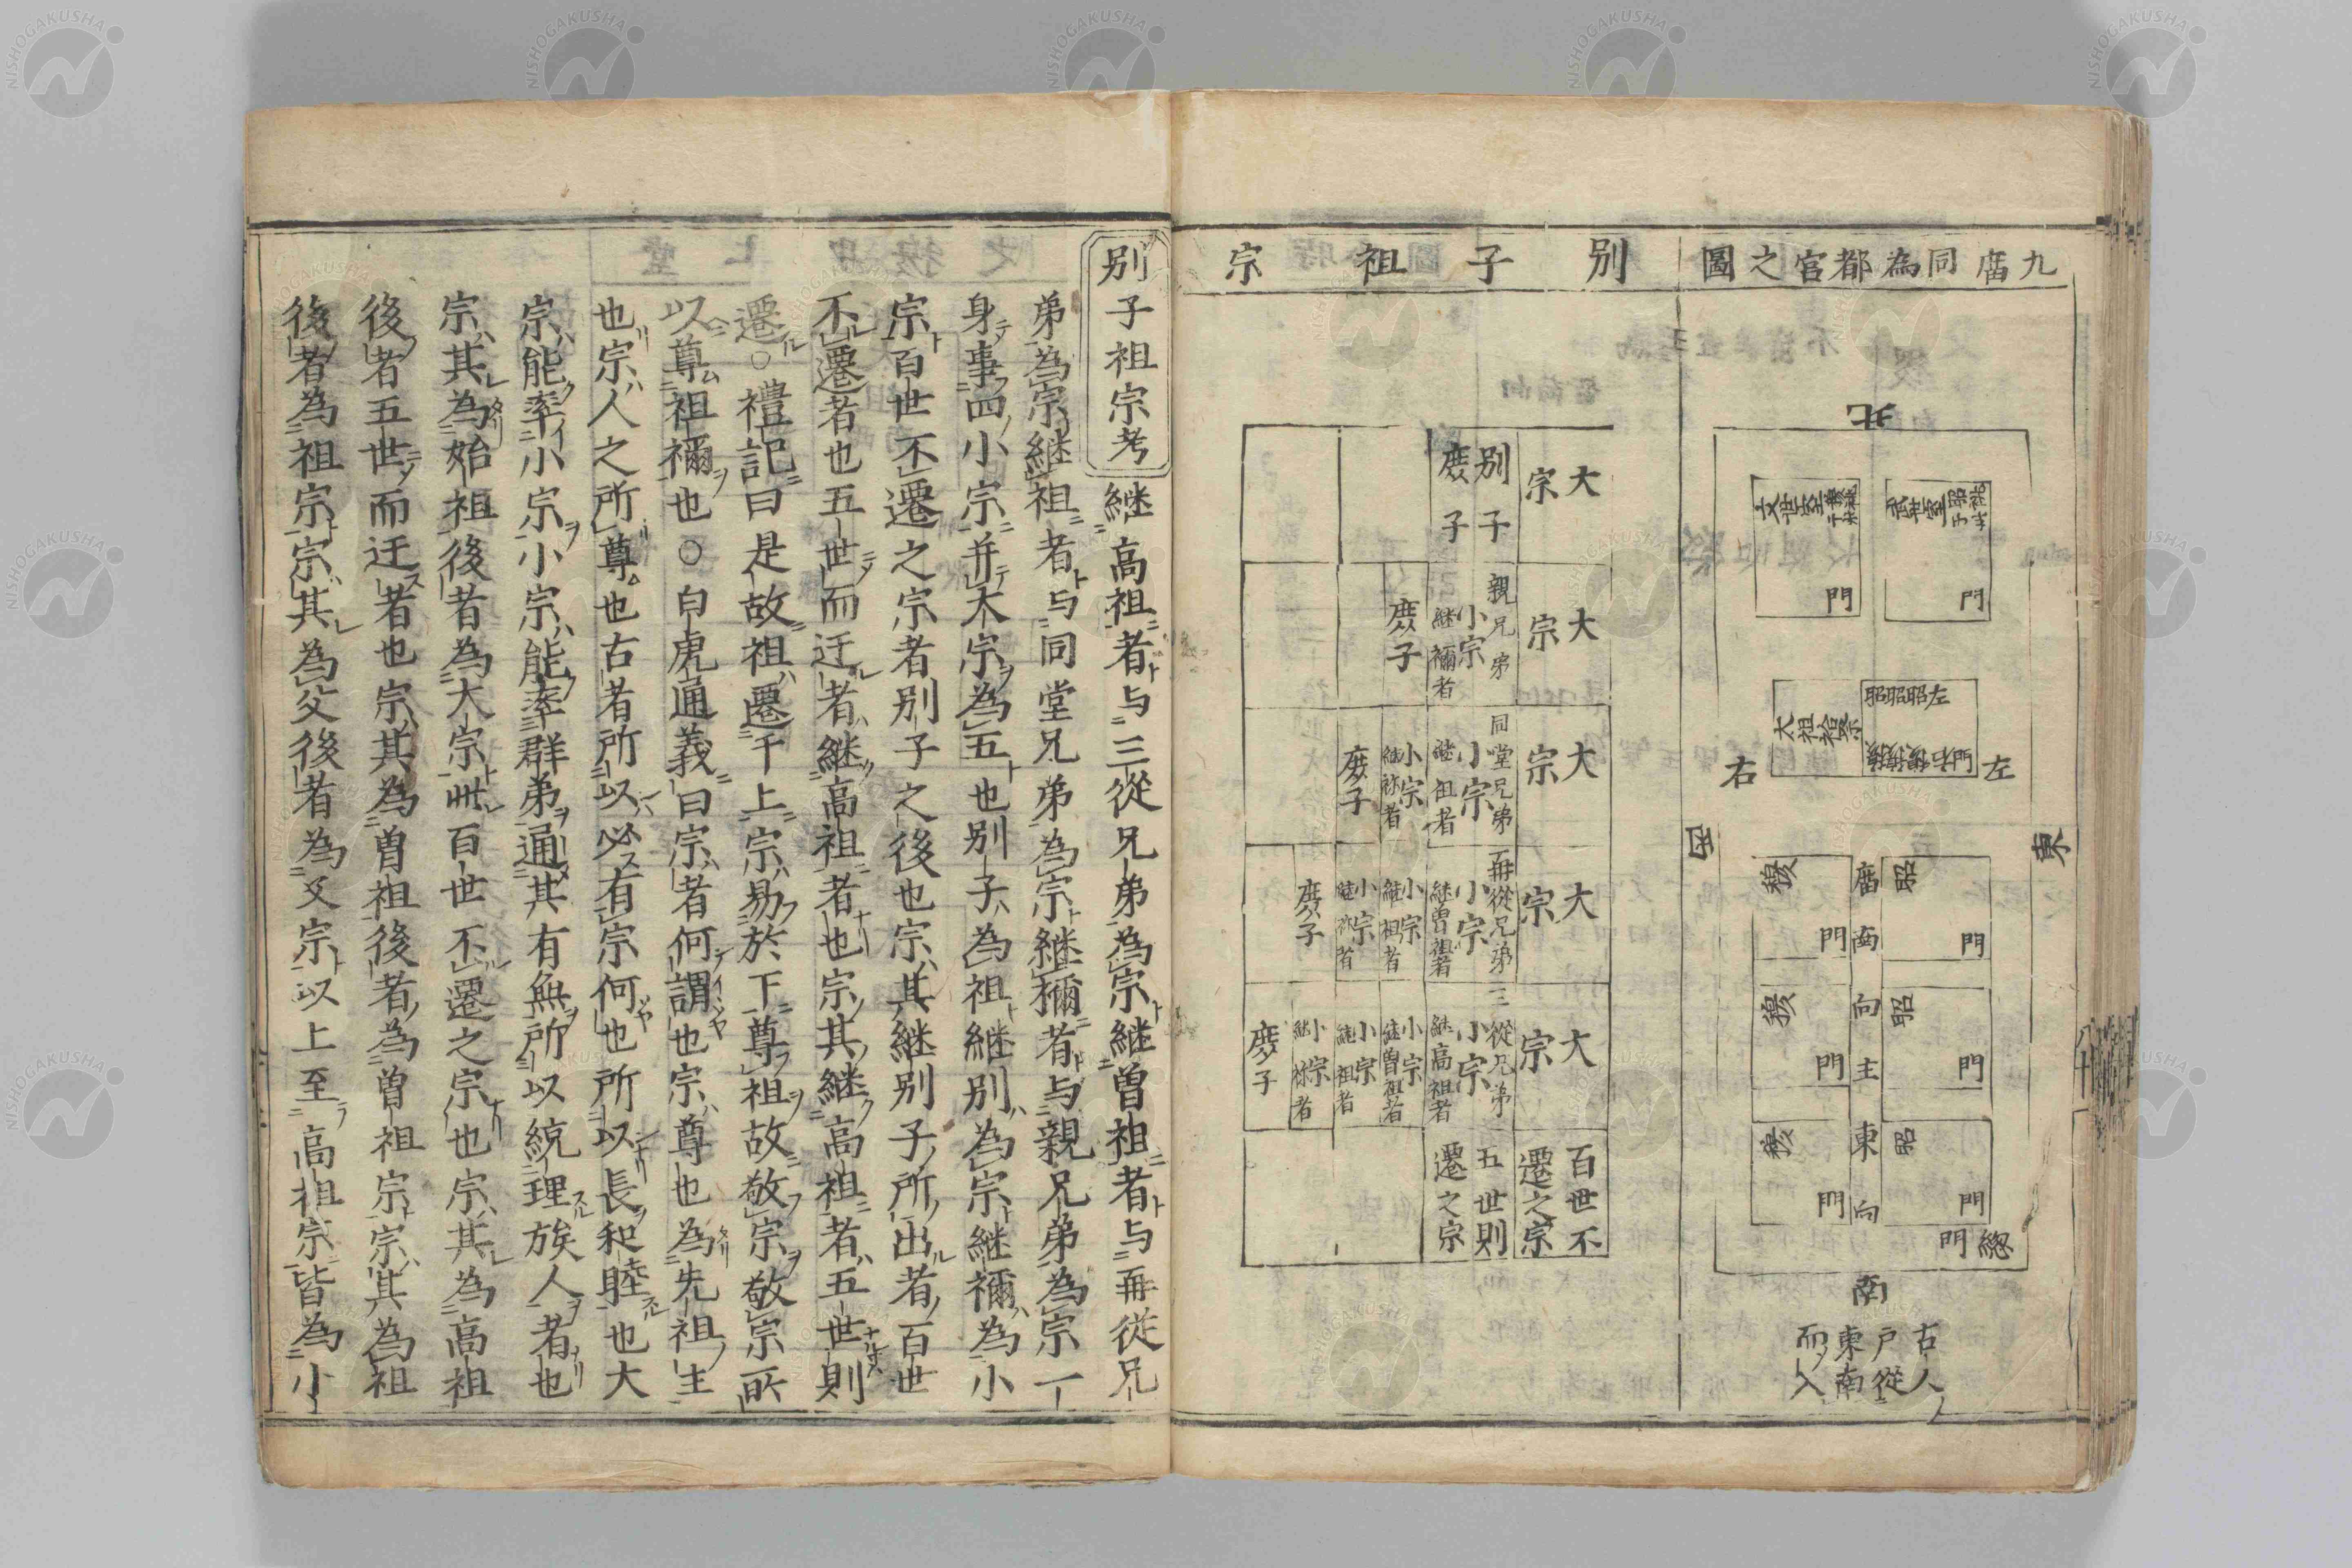 九庿同為都宮之圖
北
昭
武世室
門
穆
文世室
門
左昭昭昭
太祖
門右穆穆穆
左
右
東
昭
門
昭
門
昭
門
庿西向主東向
穆
門
穆
門
穆
門
總門
南
古人
戶從
東南
而入
別子祖宗
大宗
別子
庶子
大宗
親兄弟
小宗
継禰者
庶子
大宗
同堂兄弟
小宗
継祖者
小宗
継祢者
庶子
大宗
再從兄弟
小宗
継曽祖者
小宗
継祖者
小宗
継祢者
庶子
大宗
三從兄弟
小宗
継高祖者
小宗
継曽祖者
小宗
継祖者
小宗
継祢者
庶子
百世不
遷之宗
五世則
遷之宗
別子祖宗考 継高祖者与三從兄弟為宗継曽祖者与再從兄
弟為宗継祖者与同堂兄弟為宗継禰者与親兄弟為宗一
身事四小宗并大宗為五也別子為祖継別為宗継禰為小
宗百世不遷之宗者別子之後也宗其継別子所出者百世
不遷者也五世而迁者継高祖者也宗其継高祖者五世則
遷○禮記曰是故祖遷于上宗易於下尊祖故敬宗敬宗所
以尊祖禰也○白虎通義曰宗者何謂也宗尊也為先祖主
也宗人之所尊也古者所以必有宗何也所以長和睦也大
宗能率小宗小宗能率群弟通其有無所以統理族人者也
宗其為始祖後者為大宗此百世不遷之宗也宗其為高祖
後者五世而迁者也宗其為曽祖後者為曽祖宗宗其為祖
後者為祖宗宗其為父後者為父宗以上至高祖宗皆為小